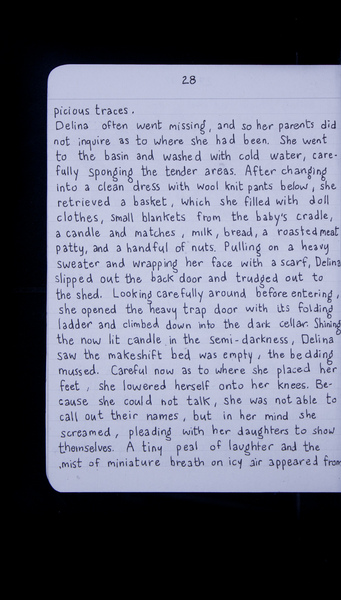 28
picious traces.
Delina often went missing, and so her parents did
not inquire as to where she had been. She went
to the basin and washed with cold water, care-
fully sponging the tender areas. After changing
into a clean dress with wool knit pants below, she
retrieved a basket, which she filled with doll
clothes, small blankets from the baby's cradle,
a candle and matches, milk, bread, a roasted meat
patty, and a handful of nuts. Pulling on a heavy
sweater and wrapping her face with a scarf, Delina
slipped out the back door and trudged out to
the shed. Looking carefully around before entering,
she opened the heavy trap door with its folding
ladder and climbed down into the dark cellar. Shining
the now lit candle in the semi-darkness, Delina
saw the makeshift bed was empty, the bedding
mussed. Careful now as to where she placed her
feet, she lowered herself onto her knees. Be-
cause she could not talk, she was not able to
call out their names, but in her mind she
screamed, pleading with her daughters to show
themselves. A tiny peal of laughter and the
mist of miniature breath on icy air appeared from